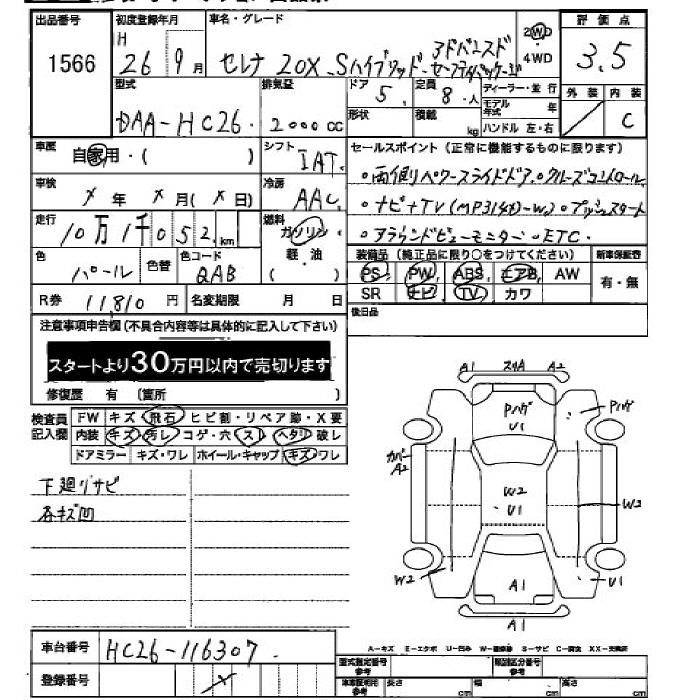 出品番号
1566
初度登録年月
H
26年9月
車名・グレード
セレナ 20X Sハイブリッド アドバンスド
セーフティパッケージ
2WD
4WD
評価点
3.5
外装 内装
C
型式
DAA-HC26
排気量
2000cc
ドア
5
定員
8人
形状
積載
kg
ディーラー・並行
モデル年式 年
ハンドル 左・右
車歴
自家用・( )
シフト
IAT
セールスポイント(正常に機能するものに限ります)
。両側パワースライドドア。クルーズコントロール
。ナビ+TV
。プッシュスタート
。アラウンドビューモニター。ETC.
車検
メ年 メ月(メ日)
冷房
AAC
走行
10万1千052km
燃料
ガソリン
軽・油
( )
色
パール
色替
色コード
QAB
装備品(純正品に限り○をつけてください)
新車保証書
PS PW ABS エアB AW
SR ナビ TV カワ
有・無
R券 11810円
名変期限 月 日
後日品
注意事項申告欄(不具合内容等は具体的に記入して下さい)
スタートより30万円以内で売切ります
修復歴 有 (箇所 )
検査員記入欄
FW キズ 飛石 ヒビ割・リペア跡・X要
内装 キズ 汚レ コゲ・穴 スレ ヘタリ 破レ
ドアミラー キズ・ワレ ホイール・キャップ キズ・ワレ
下廻りサビ
各キズ凹
A1 スリA A2
Pハゲ
U1
Pハゲ
カバー
A2
W2
U1
W2
W2
A1
U1
A1
車台番号
HC26-116307
登録番号
メ
A-キズ E-エクボ U-凹み W-補修跡 S-サビ C-腐食 XX-交換済
型式指定番号
参考
類別区分番号
参考
車庫証明用
参考
長さ cm 幅 cm 高さ cm